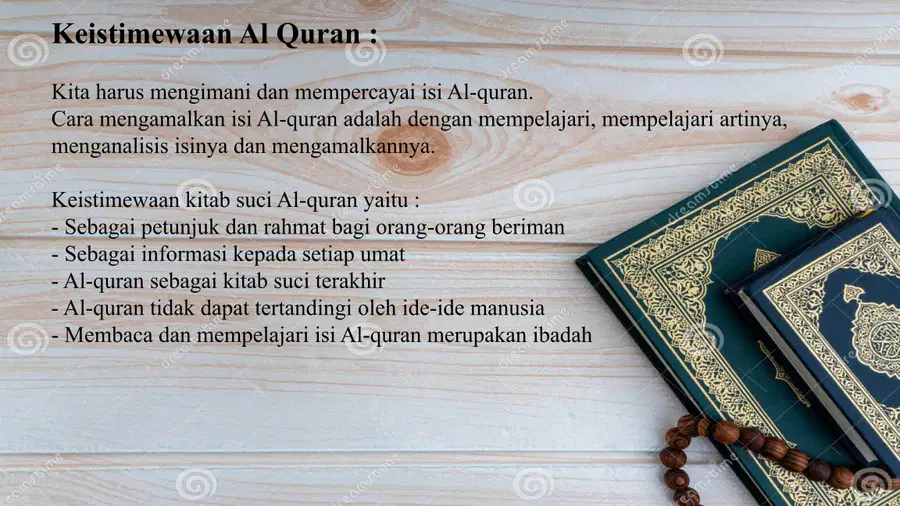 Keistimewaan Al Quran :
Kita harus mengimani dan mempercayai isi Al-quran.
Cara mengamalkan isi Al-quran adalah dengan mempelajari, mempelajari artinya,
menganalisis isinya dan mengamalkannya.
Keistimewaan kitab suci Al-quran yaitu :
- Sebagai petunjuk dan rahmat bagi orang-orang beriman
- Sebagai informasi kepada setiap umat
- Al-quran sebagai kitab suci terakhir
- Al-quran tidak dapat tertandingi oleh ide-ide manusia
- Membaca dan mempelajari isi Al-quran merupakan ibadah
dreamstime